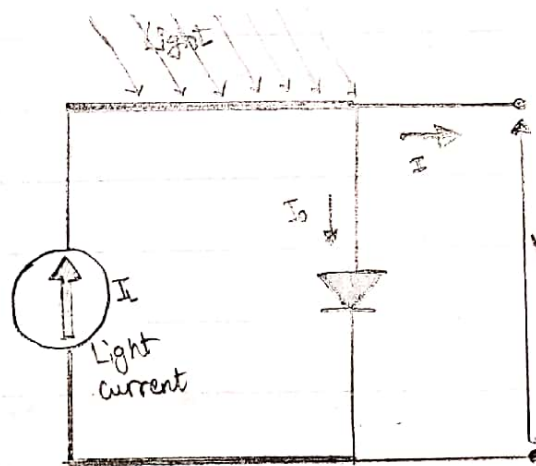 Light
I
I₀
I_L
Light
current
V